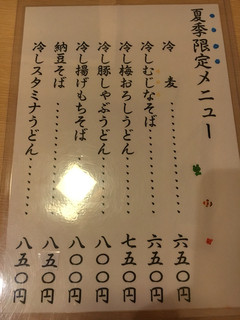 夏季限定メニュー
冷麦………六五〇円
冷しむじなそば………六五〇円
冷し梅おろしうどん………七五〇円
冷し豚しゃぶうどん………八〇〇円
冷し揚げもちそば………八〇〇円
納豆そば………八五〇円
冷しスタミナうどん………八五〇円